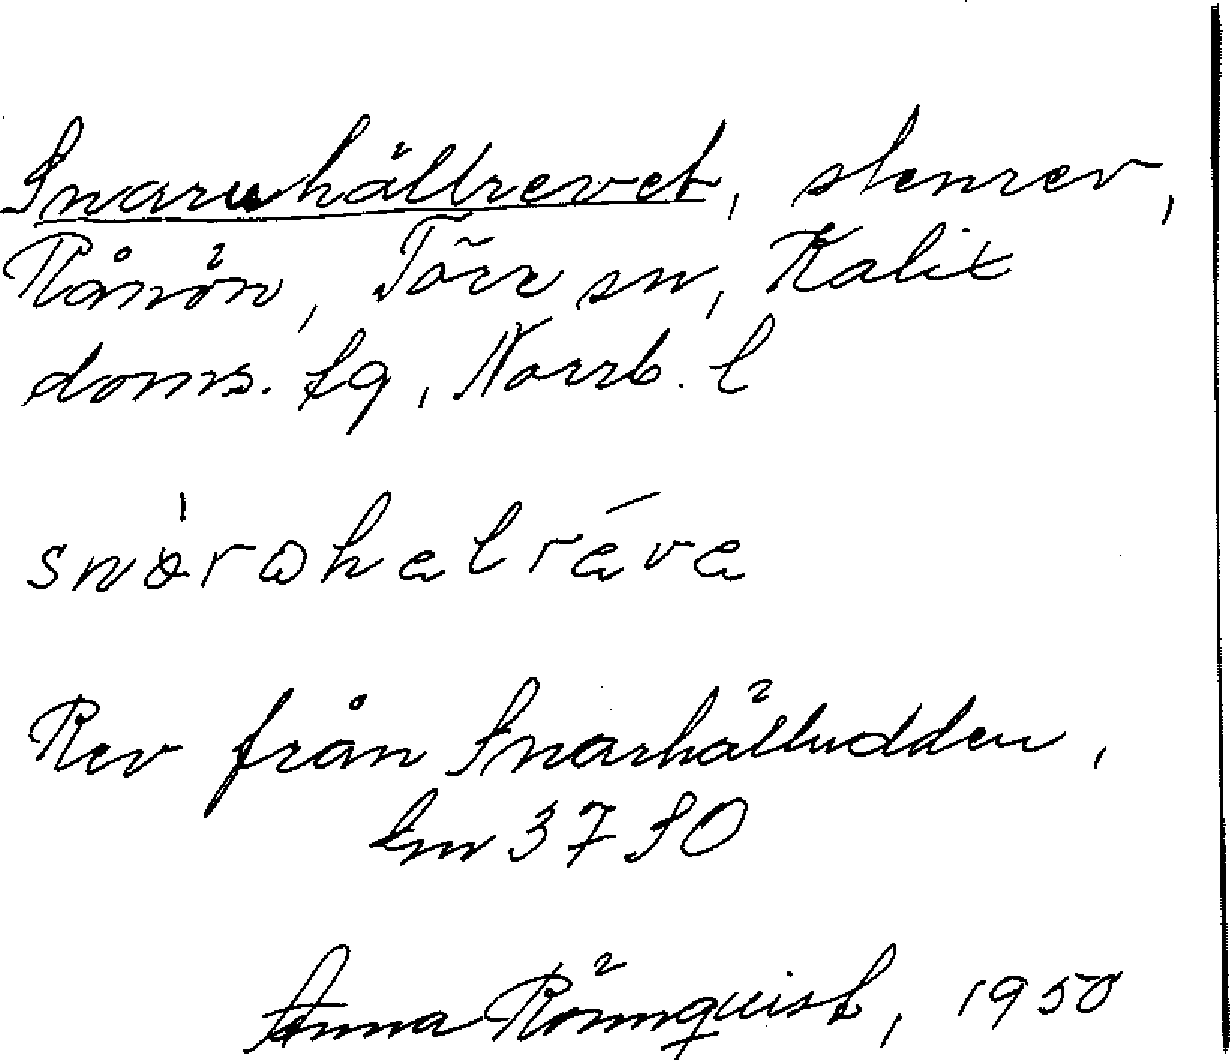 Snaruhällrevet, stenrev,
Rånön, Töre sn, Kalix
doms. tg, Norrb. l
snàrωhelréve
Rev från Snarhälludden,
Lm 3780
Anna Rönnquist, 1950